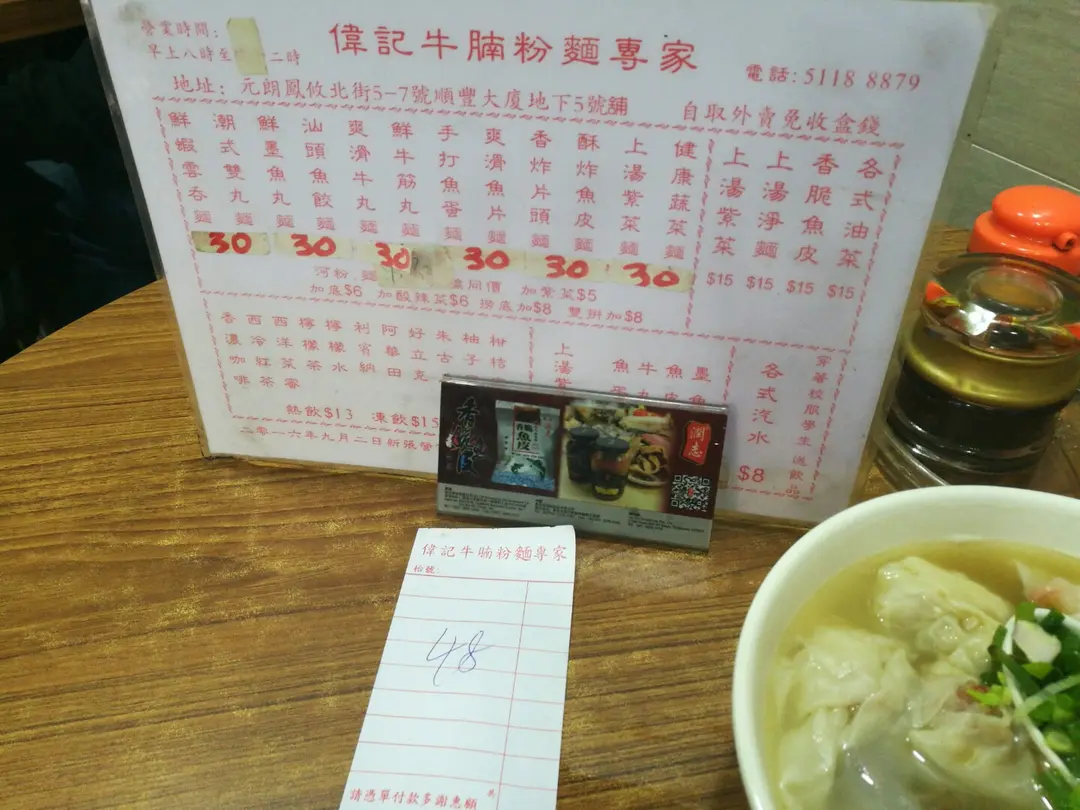 營業時間:
早上八時至 二時
偉記牛腩粉麵專家
電話: 5118 8879
地址: 元朗鳳攸北街5-7號順豐大廈地下5號舖
自取外賣免收盒錢
鮮蝦雲吞麵
潮式雙丸麵
鮮墨魚丸麵
汕頭魚餃麵
爽滑牛丸麵
鮮牛筋丸麵
手打魚蛋麵
爽滑魚片麵
香炸片頭麵
酥炸魚皮麵
上湯紫菜麵
健康蔬菜麵
30 30 30 30 30 30
河粉 麵 同價 加紫菜$5
加底$6 加酸辣菜$6 撈底加$8 雙拼加$8
上湯紫菜 $15
上湯淨麵 $15
香脆魚皮 $15
各式油菜 $15
香濃咖啡
西冷紅茶
西洋菜蜜
檸檬茶
檸檬水
利賓納
阿華田
好立克
朱古
柚子
柑桔
熱飲$13 凍飲$15
二零一六年九月二日新張營
上湯紫
魚蛋
牛丸
魚
墨魚
各式汽水
$8
穿著校服學生送飲品
香脆魚皮
澗志
偉記牛腩粉麵專家
枱號:
48
請憑單付款多謝惠顧
共